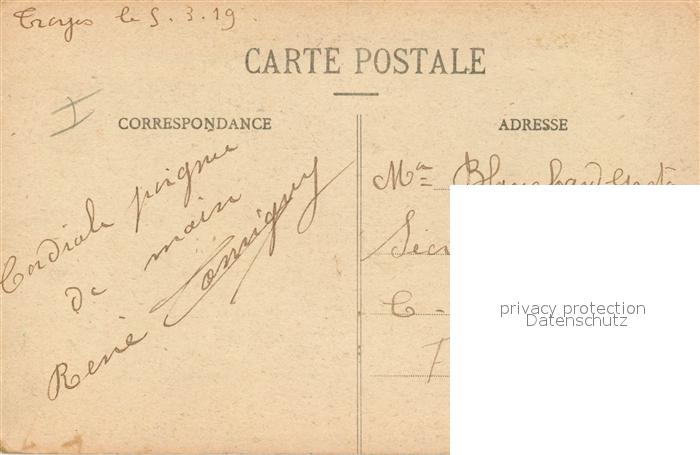 Troyes le 5.3.19
CARTE POSTALE
CORRESPONDANCE
ADRESSE
Cordiale poignée
de main
René
Mr Blanchard
Secr
C -
privacy protection
Datenschutz